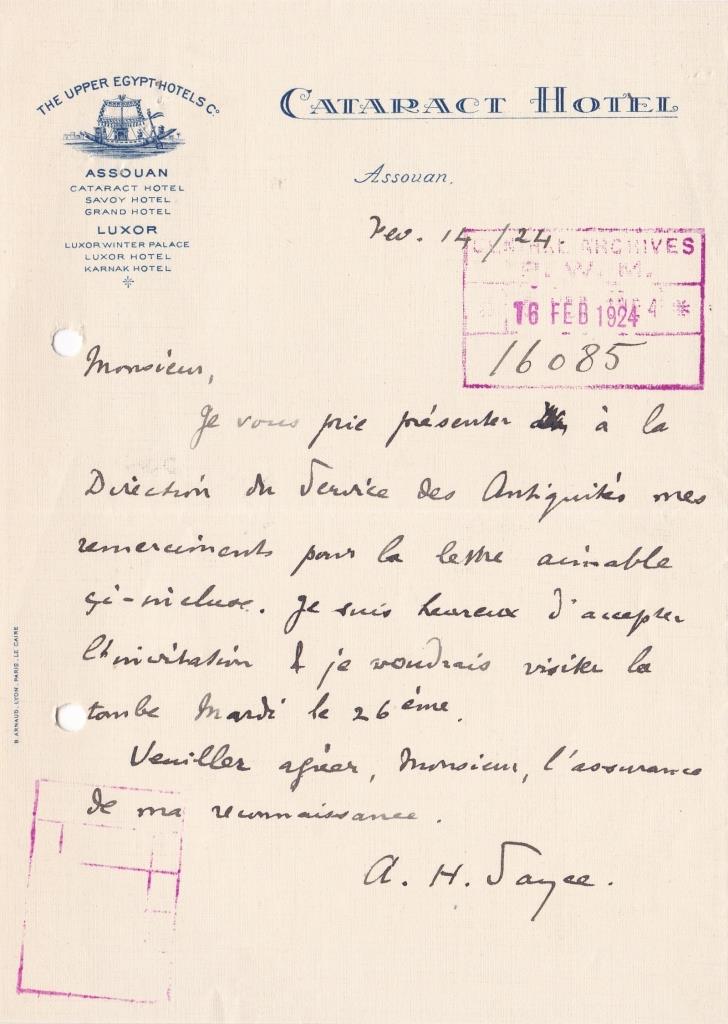 THE UPPER EGYPT HOTELS Co
CATARACT HOTEL
ASSOUAN
CATARACT HOTEL
SAVOY HOTEL
GRAND HOTEL
LUXOR
LUXOR WINTER PALACE
LUXOR HOTEL
KARNAK HOTEL
Assouan.
Fev. 14/24
CENTRAL ARCHIVES
P. W. M.
16 FEB 1924
16085
Monsieur,
Je vous prie présenter à la
Direction du Service des Antiquités mes
remerciments pour la lettre aimable
çi-incluse. Je suis heureux d'accepter
l'invitation & je voudrais visiter la
tombe Mardi le 26ème.
Veuiller agréer, Monsieur, l'assurance
de ma reconnaissance.
A. H. Sayce.
B. ARNAUD. LYON. PARIS. LE CAIRE